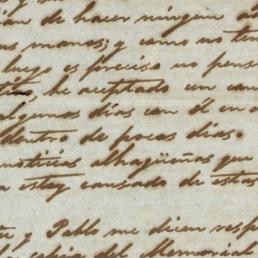 de hacer ningun
manos; y como no ten
luego es preciso no pens
he aceptado un
algunos dias con él en
dentro de pocos dias.
noticias alhagüeñas que
a estoy cansado de estas
y Pablo me dicen resp
copia del Memorial